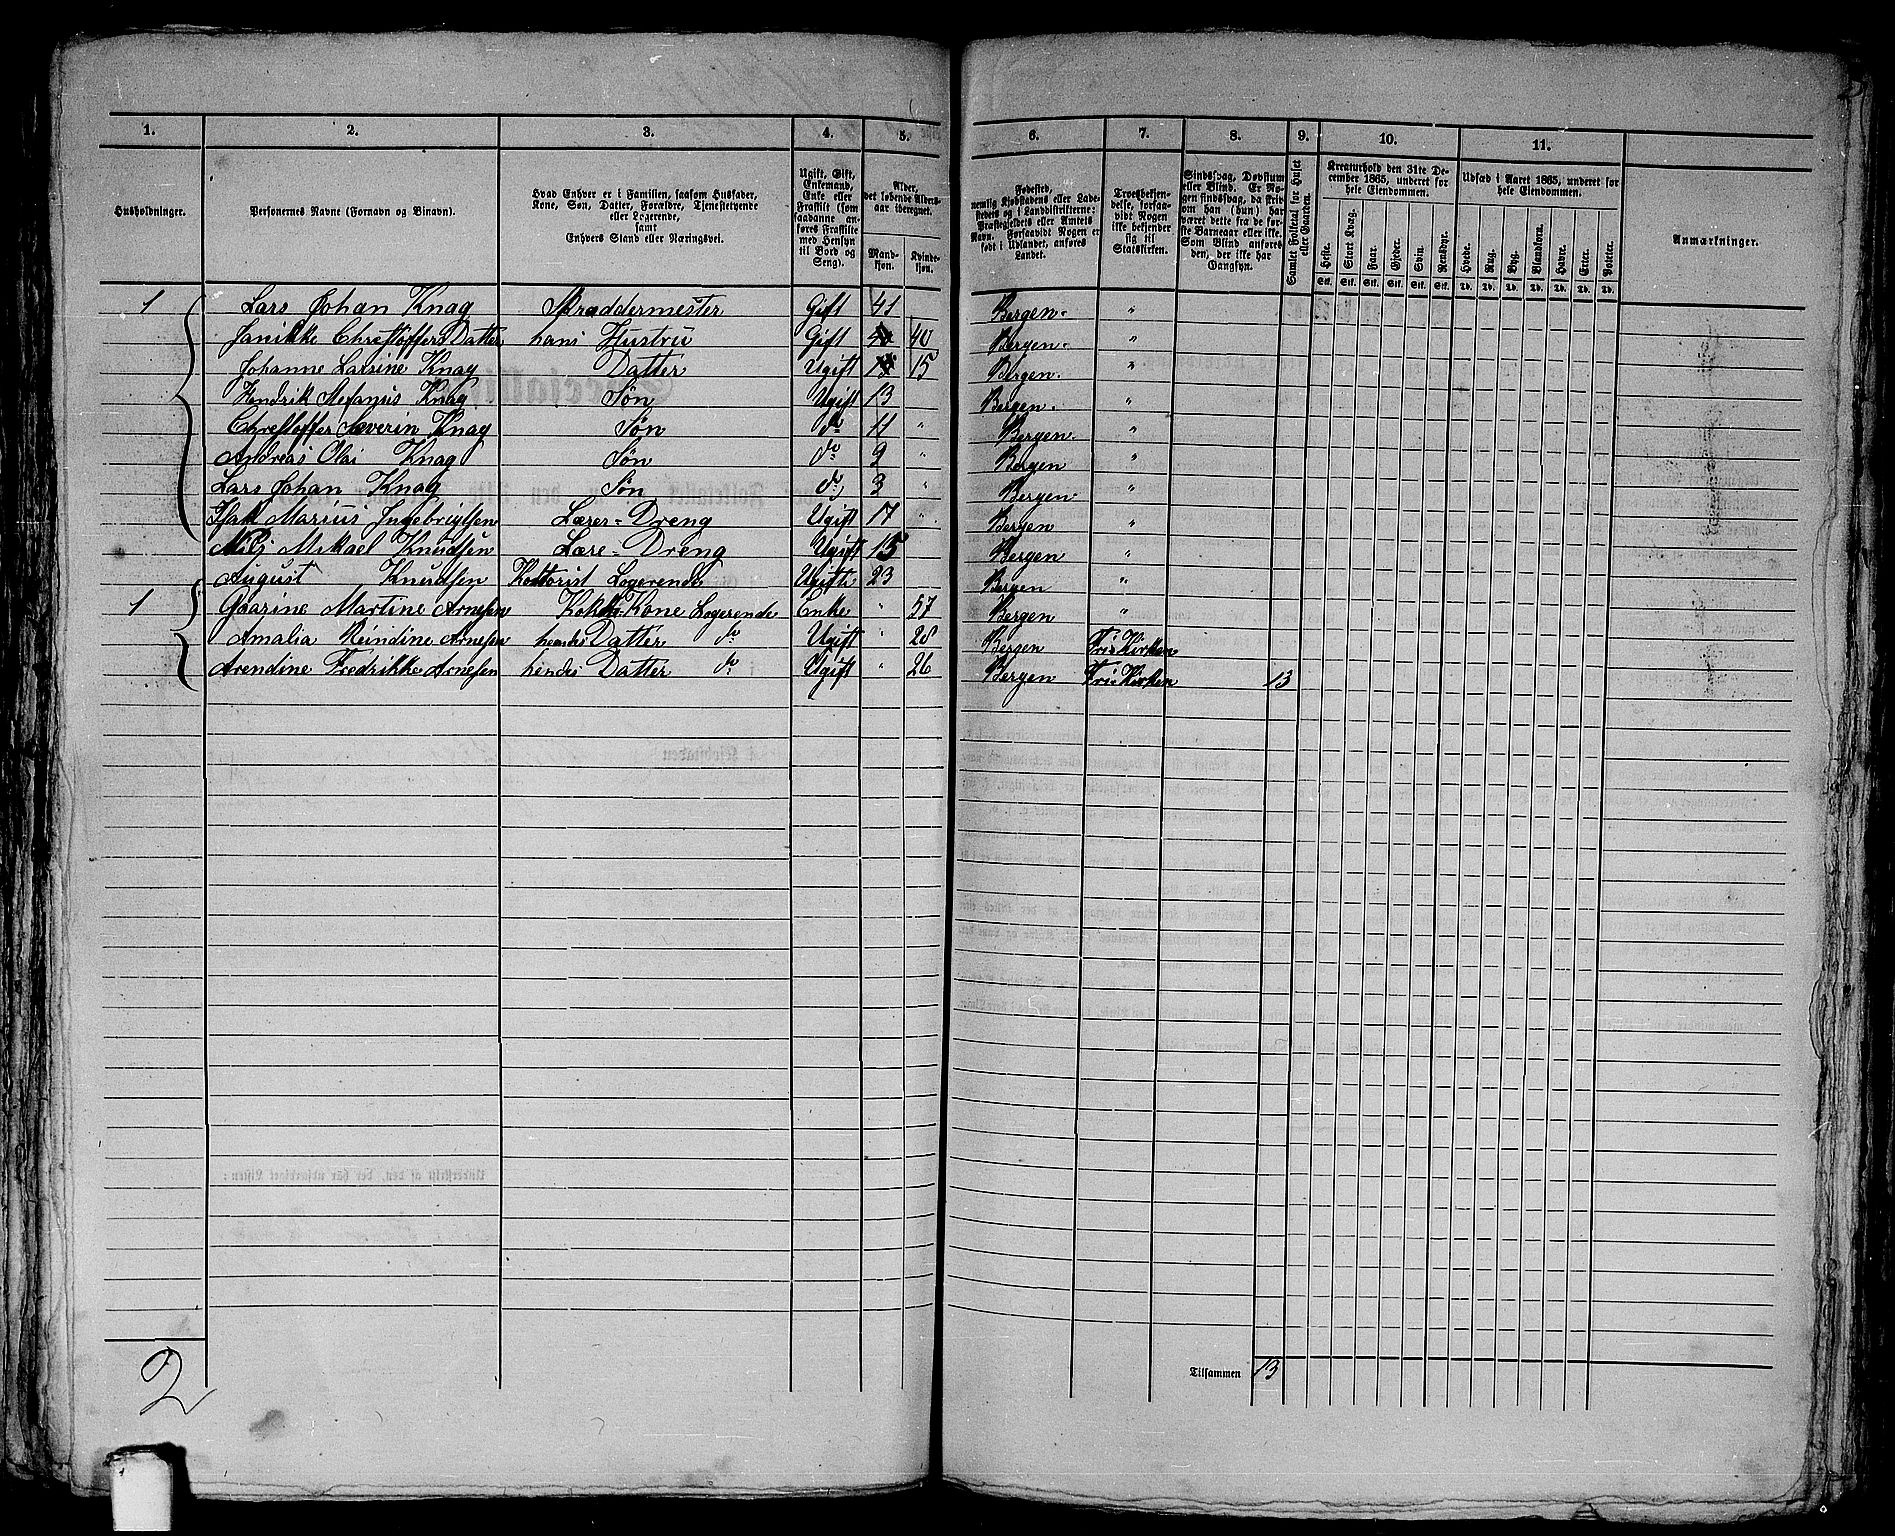 1. 2. 3. 4. 5. 6. 7. 8. 9. 10. 11.
Husholdninger.
Personernes Navne (Fornavn og Binavn).
Hvad Enhver er i Familien, saasom Husfader,
Kone, Søn, Datter, Forældre, Tjenestetyende
eller Logerende,
samt
Enhvers Stand eller Næringsvei.
Ugift, Gift,
Enkemand,
Enke eller
Fraskilt (som
saadanne an-
føres Fraskilte
med Hensyn
til Bord og
Seng).
Alder,
det løbende Alders-
aar iberegnet.
Mand-
kjøn.
Kvinde-
kjøn.
Fødested,
nemlig Kjøbstadens eller Lade-
stedets og i Landdistrikterne:
Præstegjeldets eller Amtets
Navn. Forsaavidt Nogen er
født i Udlandet, anføres
Landet.
Troesbekjen-
delse, forsaa-
vidt Nogen
ikke bekjender
sig til
Statskirken.
Sindssvag, Døvstum
eller Blind. Er No-
gen sindssvag, da skri-
ves om han (hun) har
været dette fra de før-
ste Barneaar eller ikke.
Som Blind anføres
den, der ikke har
Gangsyn.
Samlet Folketal for Huset
eller Gaarden.
Kreaturhold den 31te De-
cember 1865, underet for
hele Eiendommen.
Heste. Stort Kvæg. Faar. Gjeder. Svin. Rensdyr.
Stk. Stk. Stk. Stk. Stk. Stk.
Udsæd i Aaret 1865, underet for
hele Eiendommen.
Hvede. Rug. Byg. Blandkorn. Havre. Erter. Poteter.
Td. Td. Td. Td. Td. Td. Td.
Anmærkninger.
1 Lars Johan Knag Skræddermester Gift 41 Bergen. "
Janikke Christoffers Datter hans Hustru Gift 40 Bergen. "
Johanne Larsine Knag Datter Ugift 15 Bergen. "
Hendrik Stefanus Knag Søn Ugift 13 Bergen. "
Christoffer Severin Knag Søn do 11 " Bergen. "
Andreas Olai Knag Søn do 9 " Bergen "
Lars Johan Knag Søn do 3 " Bergen "
Isak Marius Ingebrigtsen Lærer-Dreng Ugift 17 " Bergen "
Nils Mikael Knudsen Lære-Dreng Ugift 15 Bergen "
August Knudsen Logerende Ugift 23 Bergen "
1 Martine Arnesen Kone Logerende Enke " 57 Bergen "
Amalia Reindine Arnesen hendes Datter do Ugift " 28 Bergen Fri-Kirken
Arendine Fredrikke Arnesen hendes Datter do Ugift " 26 Bergen Fri-Kirken 13
Tilsammen 13
2